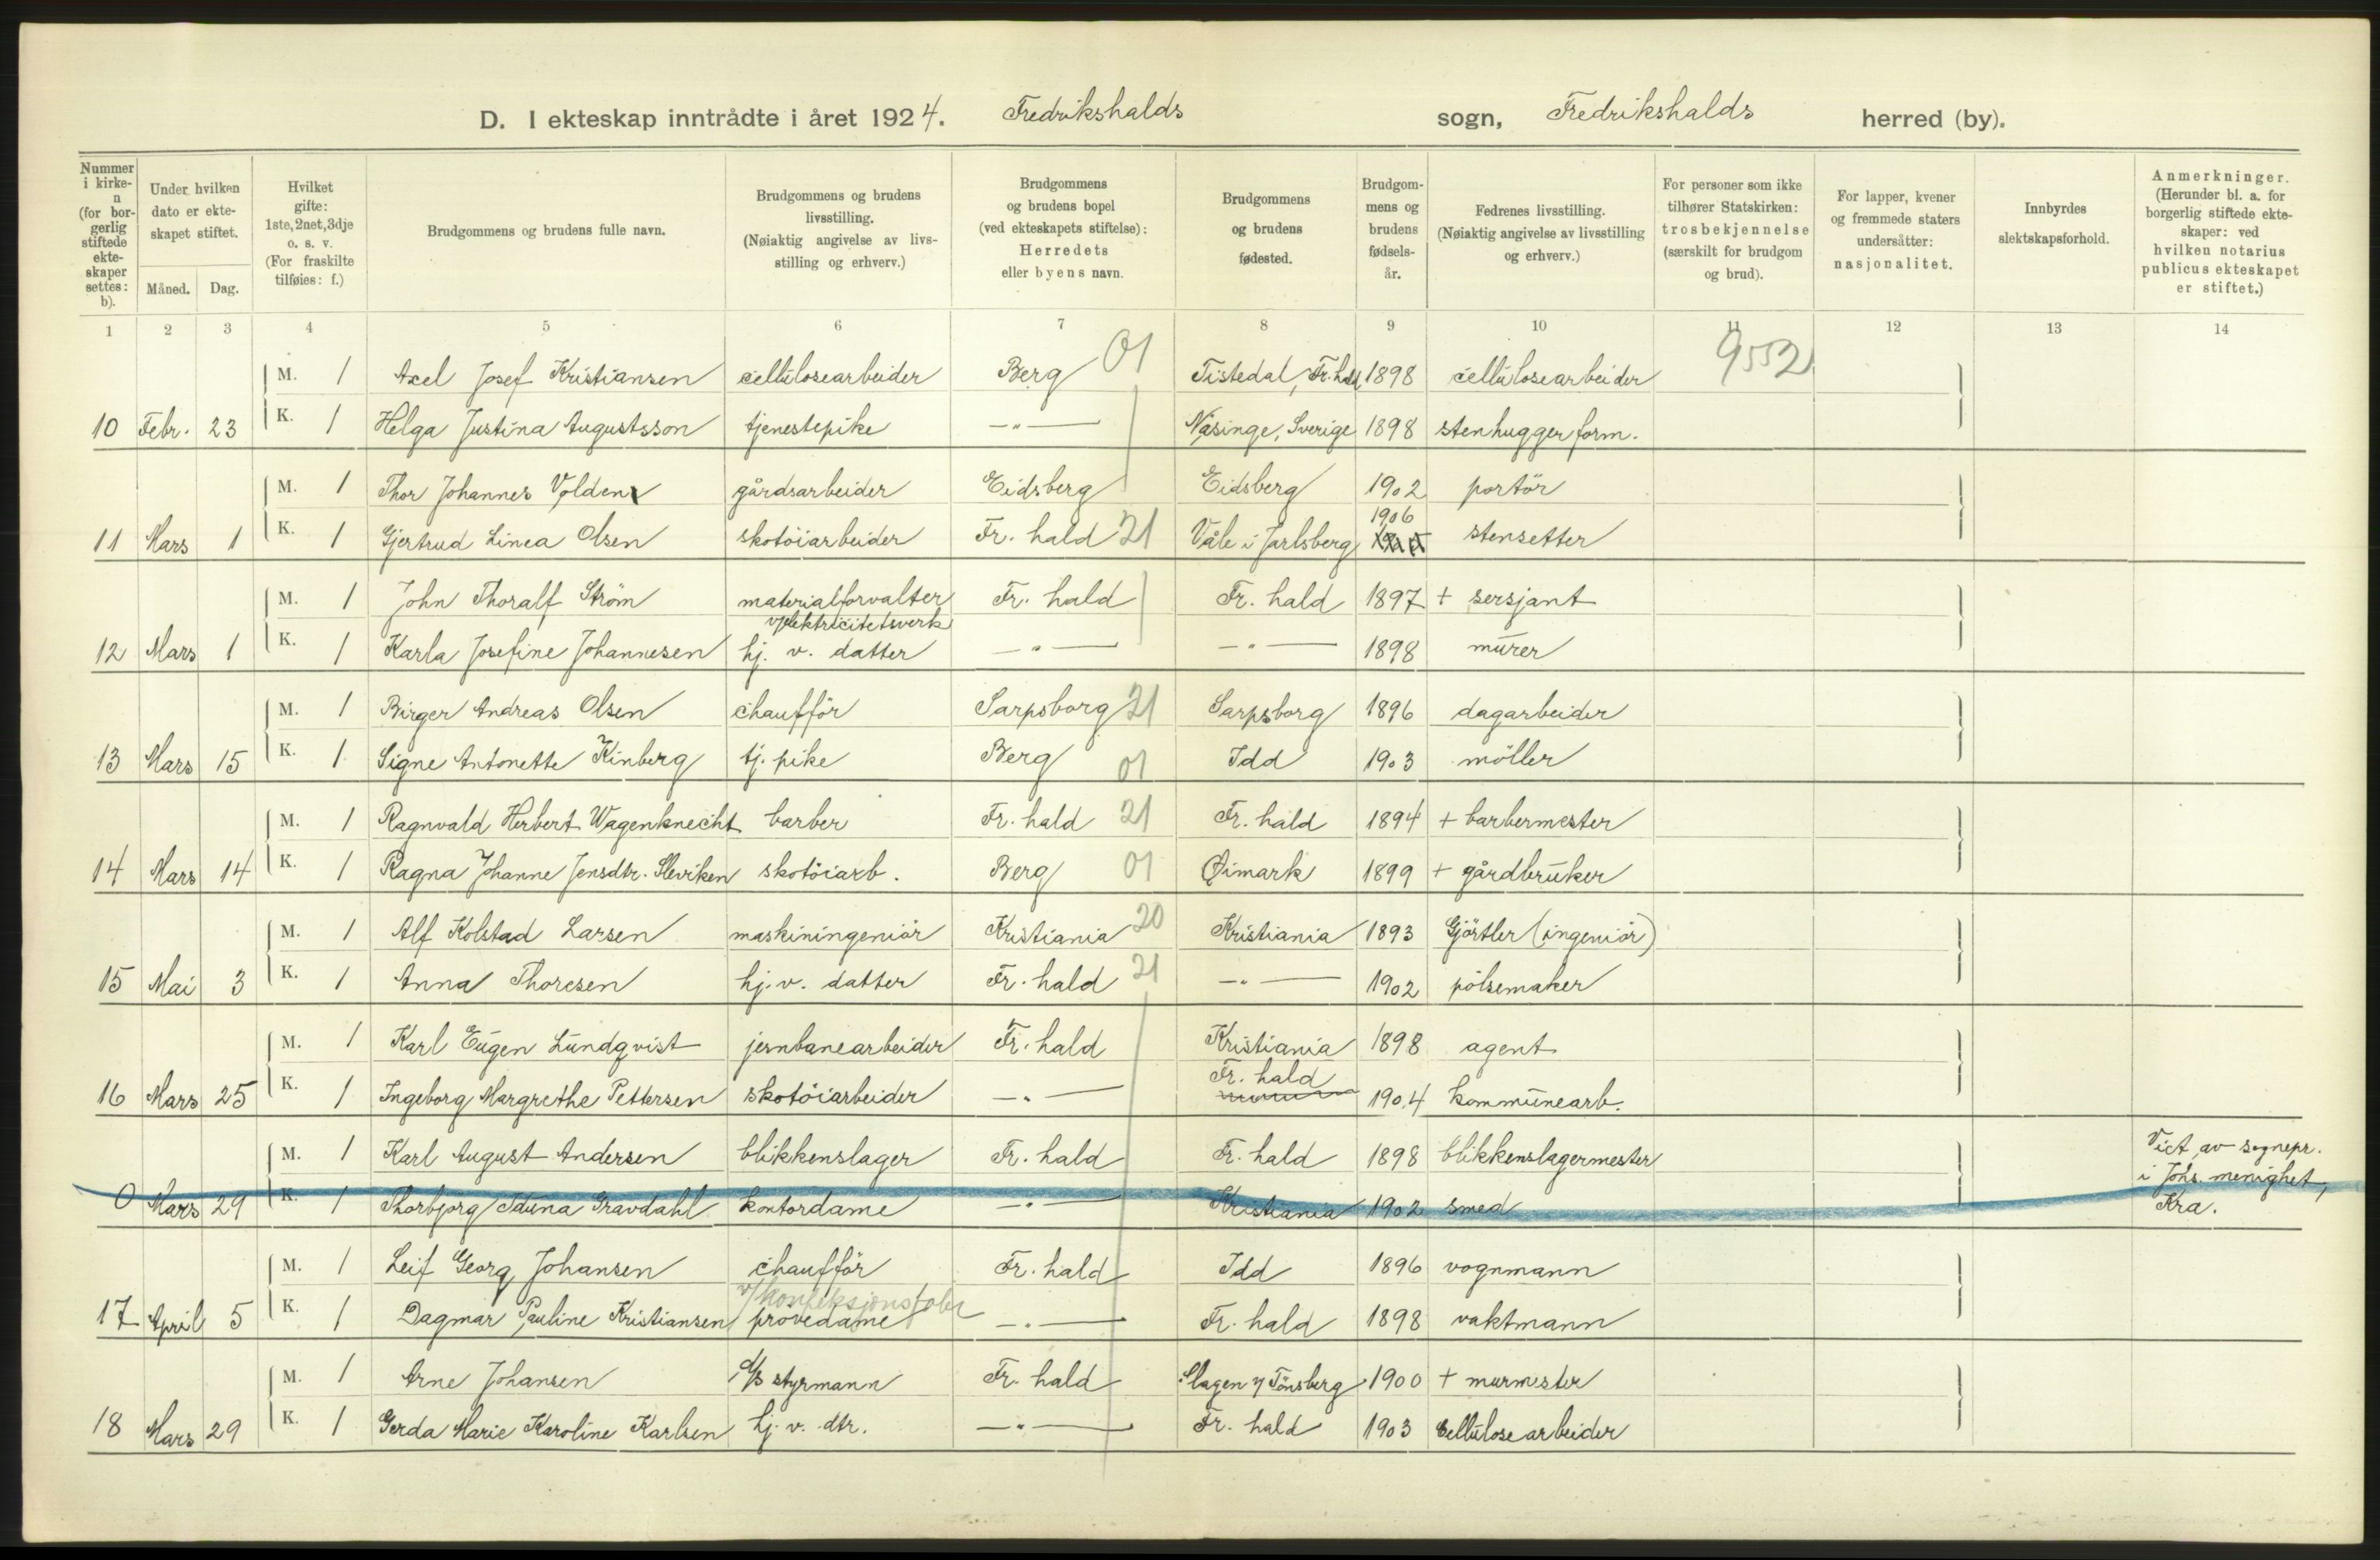 D. I ekteskap inntrådte i året 1924. Fredrikshalds sogn, Fredrikshalds herred (by).
Nummer i kirke- n (for bor- gerlig stiftede ekte- skaper settes: b).
Under hvilken dato er ekte- skapet stiftet.
Måned. Dag.
Hvilket gifte: 1ste, 2net, 3dje o. s. v. (For fraskilte tilføies: f.)
Brudgommens og brudens fulle navn.
Brudgommens og brudens livsstilling. (Nøiaktig angivelse av livs- stilling og erhverv.)
Brudgommens og brudens bopel (ved ekteskapets stiftelse): Herredets eller byens navn.
Brudgommens og brudens fødested.
Brudgom- mens og brudens fødsels- år.
Fedrenes livsstilling. (Nøiaktig angivelse av livsstilling og erhverv.)
For personer som ikke tilhører Statskirken: trosbekjennelse (særskilt for brudgom og brud).
For lapper, kvener og fremmede staters undersåtter: nasjonalitet.
Innbyrdes slektskapsforhold.
Anmerkninger. (Herunder bl. a. for borgerlig stiftede ekte- skaper: ved hvilken notarius publicus ekteskapet er stiftet.)
1 2 3 4 5 6 7 8 9 10 11 12 13 14
M. 1 Axel Josef Kristiansen cellulosearbeider Berg 01 Tistedal, Fr.hald 1898 cellulosearbeider 9552
10 Febr. 23 K. 1 Helga Justina Augustsson tjenestepike —"— Näsinge, Sverige 1898 stenhugger form.
M. 1 Thor Johannes Volden gårdsarbeider Eidsberg Eidsberg 1902 portör
1906
11 Mars 1 K. 1 Gjertrud Linea Olsen skotöiarbeider Fr. hald 21 Våle i Jarlsberg stensetter
M. 1 John Thoralf Ström materialforvalter Fr. hald Fr. hald 1897 + sersjant
v/elektricitetsverk
12 Mars 1 K. 1 Karla Josefine Johannesen hj. v. datter —"— —"— 1898 murer
M. 1 Birger Andreas Olsen chaufför Sarpsborg 21 Sarpsborg 1896 dagarbeider
13 Mars 15 K. 1 Signe Antonette Kinberg tj. pike Berg 01 Idd 1903 möller
M. 1 Ragnvald Herbert Wagenknecht barber Fr. hald 21 Fr. hald 1894 + barbermester
14 Mars 14 K. 1 Ragna Johanne Jensdtr. Sleviken skotöiarb. Berg 01 Øimark 1899 + gårdbruker
M. 1 Alf Kolstad Larsen maskiningeniör Kristiania 20 Kristiania 1893 Gjörtler (ingeniör)
15 Mai 3 K. 1 Anna Thoresen hj. v. datter Fr. hald 21 —"— 1902 pölsemaker
M. 1 Karl Eugen Lundqvist jernbanearbeider Fr. hald Kristiania 1898 agent
Fr. hald
16 Mars 25 K. 1 Ingeborg Margrethe Pettersen skotöiarbeider —"— 1904 kommunearb.
M. 1 Karl August Andersen blikkenslager Fr. hald Fr. hald 1898 blikkenslagermester Viet av sognepr.
i Johs. menighet,
0 Mars 29 K. 1 Thorbjörg Iduna Gravdahl kontordame —"— Kristiania 1902 smed Kra.
M. 1 Leif Georg Johansen chaufför Fr. hald Idd 1896 vognmann
v/konfeksjonsfabr
17 April 5 K. 1 Dagmar Pauline Kristiansen prövedame —"— Fr. hald 1898 vaktmann
M. 1 Arne Johansen d/s styrmann Fr. hald Slagen v/ Tönsberg 1900 + murmester
18 Mars 29 K. 1 Gerda Marie Karoline Karlsen hj. v. dtr. —"— Fr. hald 1903 Cellulosearbeider